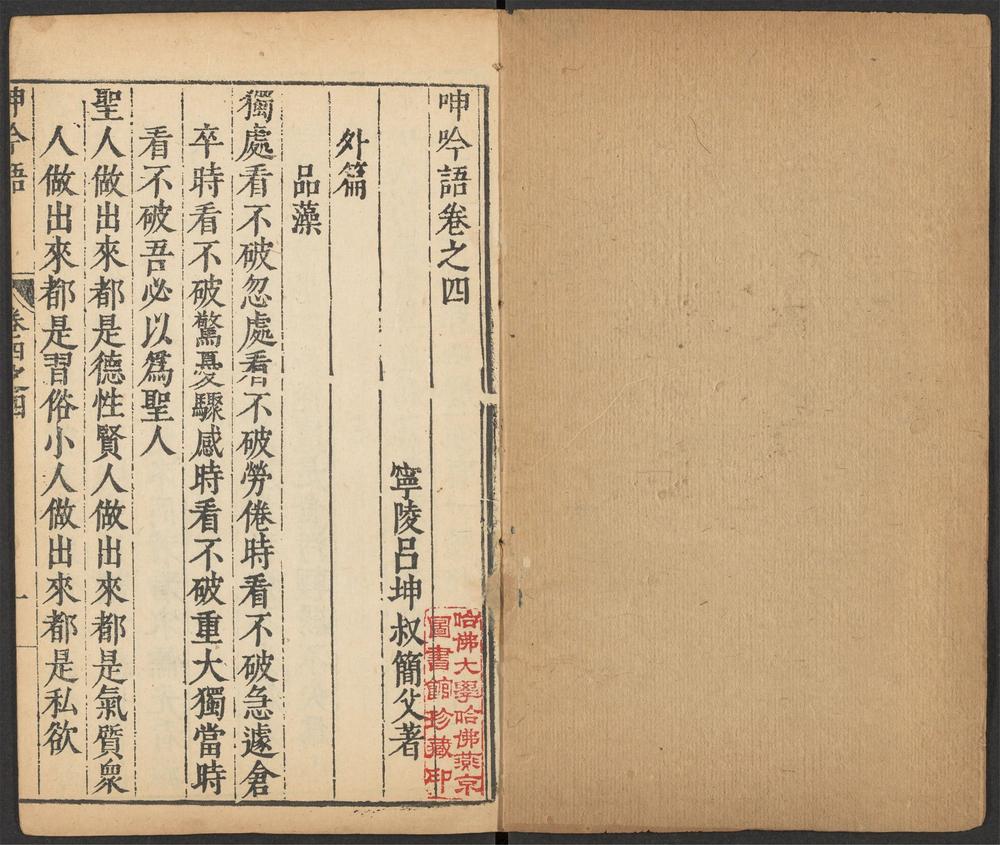 呻吟語卷之四
寧陵呂坤叔簡父著
外篇
品藻
獨處看不破忽處看不破勞倦時看不破急遽倉
卒時看不破驚憂驟感時看不破重大獨當時
看不破吾必以爲聖人
聖人做出來都是德性賢人做出來都是氣質衆
人做出來都是習俗小人做出來都是私欲
呻吟語
卷四之四
一
哈佛大學哈佛燕京
圖書館珍藏印